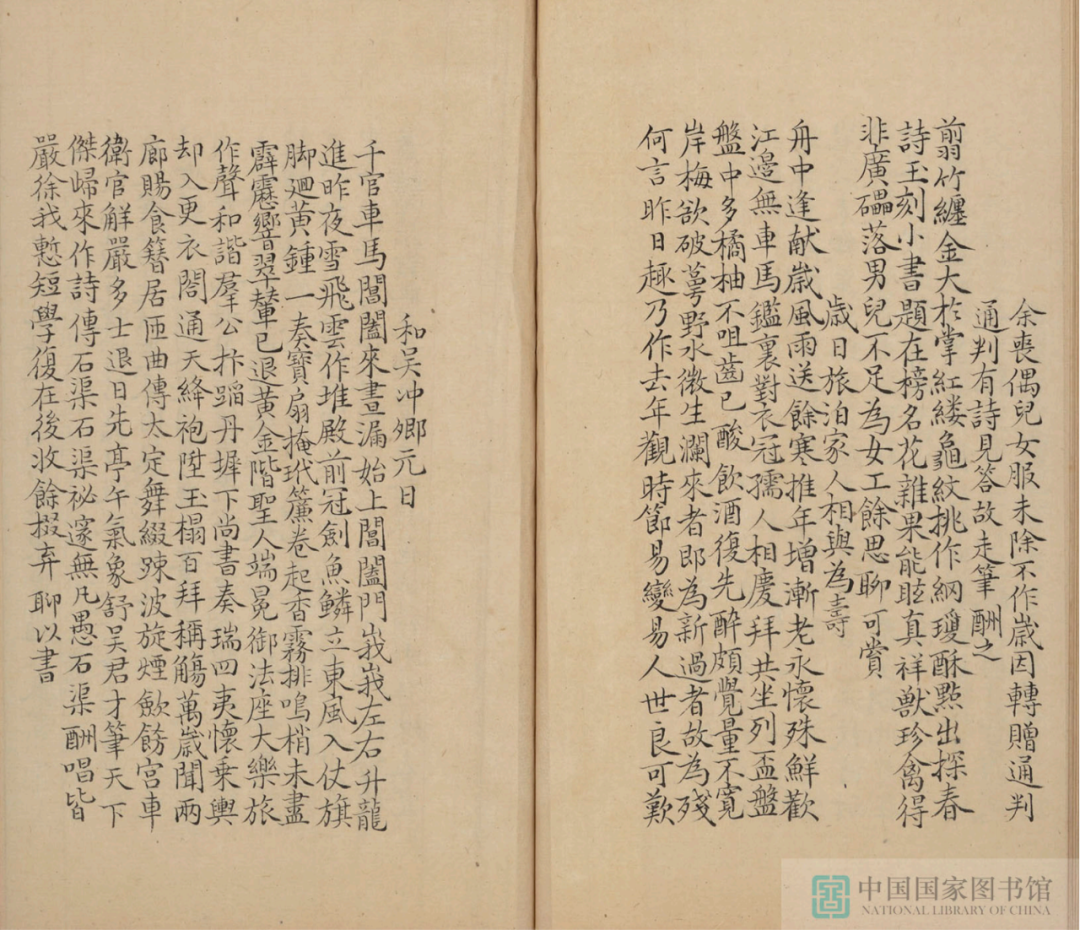 余喪偶兒女服未除不作歲因轉贈通判
通判有詩見答故走筆酬之
翦竹纏金大於掌紅縷龜紋挑作網瓊酥點出探春
詩玉刻小書題在榜名花雜果能眩真祥獸珍禽得
非廣礧落男兒不足為女工餘思聊可賞
歲日旅泊家人相與為壽
舟中逢献歲風雨送餘寒推年增漸老永懷殊鮮歡
江邊無車馬鑑裏對衣冠孺人相慶拜共坐列盃盤
盤中多橘柚不咀齒已酸飲酒復先醉頗覺量不寛
岸梅欲破萼野水微生瀾來者即為新過者故為殘
何言昨日趣乃作去年觀時節易變易人世良可歎
和吴冲卿元日
千官車馬閶闔來晝漏始上閶闔門峩峩左右升龍
進昨夜雪飛雲作堆殿前冠劍魚鱗立東風入仗旗
脚廻黄鍾一奏寶扇掩玳簾卷起香霧排鳴梢未盡
霹靂響翠輦已退黄金階聖人端冕御法座大樂旅
作聲和諧羣公抃蹈丹墀下尚書奏瑞四夷懷乗輿
却入更衣閤通天絳袍陞玉榻百拜稱觴萬歲聞兩
廊賜食簪居匝曲傳大定舞綴踈波旋煙歛餝宮車
衛官解嚴多士退日先亭午氣象舒吴君才筆天下
傑歸來作詩傳石渠石渠祕邃無凡愚石渠酬唱皆
嚴徐我慙短學復在後收餘掇弃聊以書
中国国家图书馆
NATIONAL LIBRARY OF CHINA